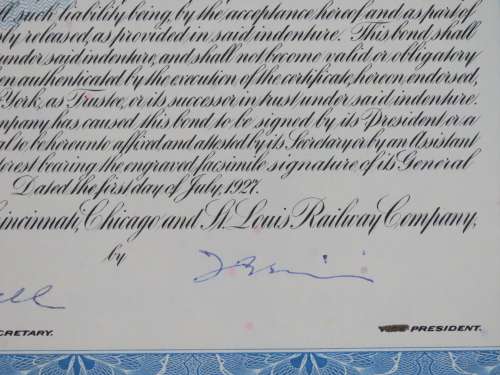 such liability being, by the acceptance hereof and as part of
released, as provided in said indenture. This bond shall
under said indenture, and shall not become valid or obligatory
authenticated by the execution of the certificate, hereon endorsed,
York, as Trustee, or its successor in trust under said indenture.
has caused this bond to be signed by its President or a
to be hereunto affixed and attested by its Secretary or by an Assistant
bearing the engraved facsimile signature of its General
Dated the first day of July, 1927.
Cincinnati, Chicago and St. Louis Railway Company,
by
PRESIDENT.